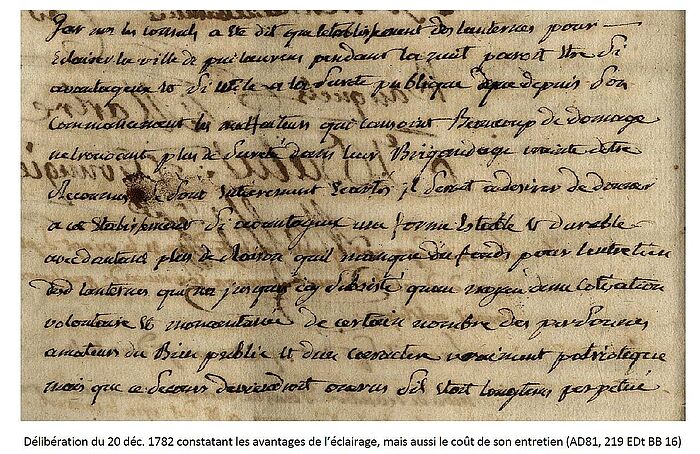 Par nos les consuls a ete dit que letablissement des lanternes pour
Eclairer la ville de puilaurens pendant la nuit paroit etre si
avantageux et si utile a la sureté publique que depuis son
Commancement les malfaiteurs qui causoint Beaucoup de domage
ne trouvant plus de sureté dans leur Brigandage crainte detre
Reconnus se sont entierement ecartés il seroit a desirer de donner
a cet etablissement si avantageux une forme estable et durable
avec dautant plus de Raison quil manque du fonds pour lentretien
des lanternes qui na jusquau icy subsisté quau moyen dune cotisation
volontaire et momantanée de certain nombre des personnes
amateurs du Bien public et dun caractere vraiment patriotique
mais que ce secours deviendroit onereus sil etoit longtems perpetué
Délibération du 20 déc. 1782 constatant les avantages de l’éclairage, mais aussi le coût de son entretien (AD81, 219 EDt BB 16)